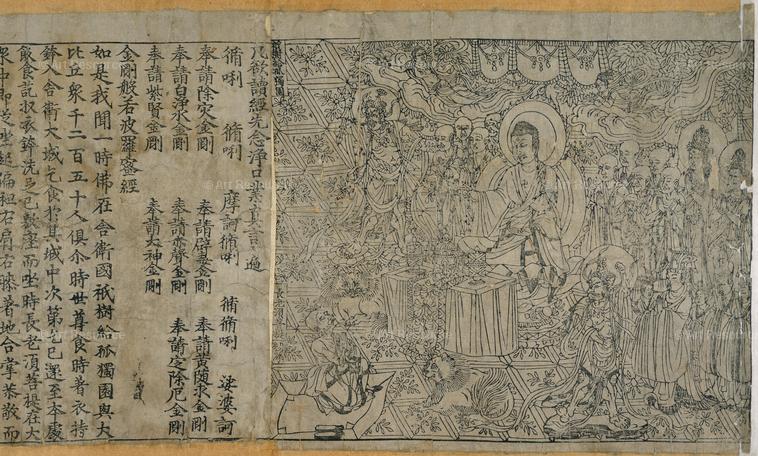 凡欲讀經先念淨口業真言一遍
脩唎 脩唎 摩訶脩唎 脩脩唎 娑婆訶
奉請除灾金剛 奉請辟毒金剛 奉請黃随求金剛
奉請白淨水金剛 奉請赤聲金剛 奉請定除厄金剛
奉請紫賢金剛 奉請大神金剛
金剛般若波羅蜜經
如是我聞一時佛在舍衛國祇樹給孤獨園與大
比丘衆千二百五十人俱尒時世尊食時著衣持
鉢入舍衛大城乞食於其城中次第乞已還至本處
飯食訖收衣鉢洗足已敷座而坐時長老湏菩提在大
衆中即從座起偏袒右肩右膝著地合掌恭敬而
© Art Resource